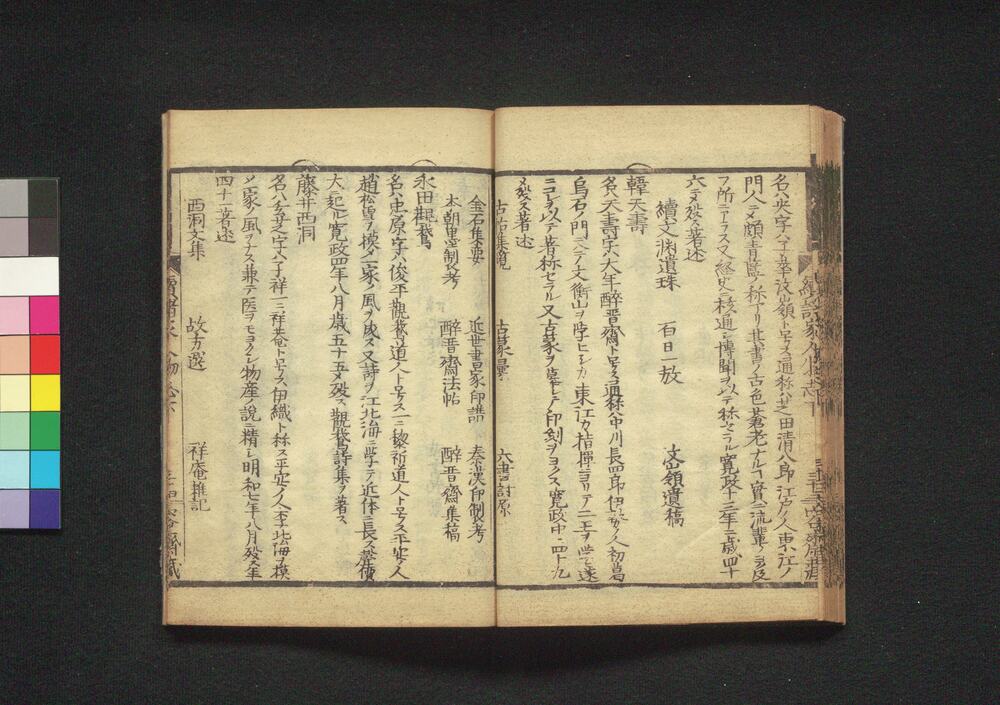 名ハ央字ハ子辛汶嶺ト号ス通称ハ芝田清八郎江戸ノ人東江ノ
門人ニメ頗青藍ト称アリ其書ノ古色蒼老ナルコ實ニ流輩ノヨク及
フ所ニアラス又経史ニ核通シ博聞ヲ以テ称セラル寛政十二年ニ歳四十
六ニメ殁ス著述
續文淵遺珠 石日一放 汶嶺遺稿
韓天壽
名ハ天壽字ハ大年醉晋齋ト号ス通称ハ中川長四郎伊勢ノ人初葛
烏石ノ門ニ入テ文衡山ヲ学ヒシカ東江カ指揮ニヨリテ二王ヲ学ヒ遂
ニコレヲ以テ著称セラル又古篆ヲ摹シテ印刻ヲヨクス寛政中ニ四十九
ニメ殁ス著述
古篆量 六書討原
金石集要 近世書家印譜 秦漢印制考
本朝墨制考 醉晋齋法帖 醉晋齋集稿
永田觀鵞
名ハ忠原字ハ俊平觀鵞道人ト号ス一ニ黎祈道人ト号ス平安ノ人
趙松雪ヲ模メ一家ノ風ヲ成ス又詩ヲ江北海ニ学テ近体ニ長ス聲價
大ニ起ル寛政四年八月歳五十五ニメ殁ス觀鵞詩集ヲ著ス
藤井西洞
祥菴ト号ス伊織ト称ス平安ノ人李北海ヲ模
メ一家ノ風ヲナス兼テ医ヲモヨクシ物産ノ説ニ精シ明和七年八月殁ス年
四十二著述
西洞文集 故方選 祥庵雜記